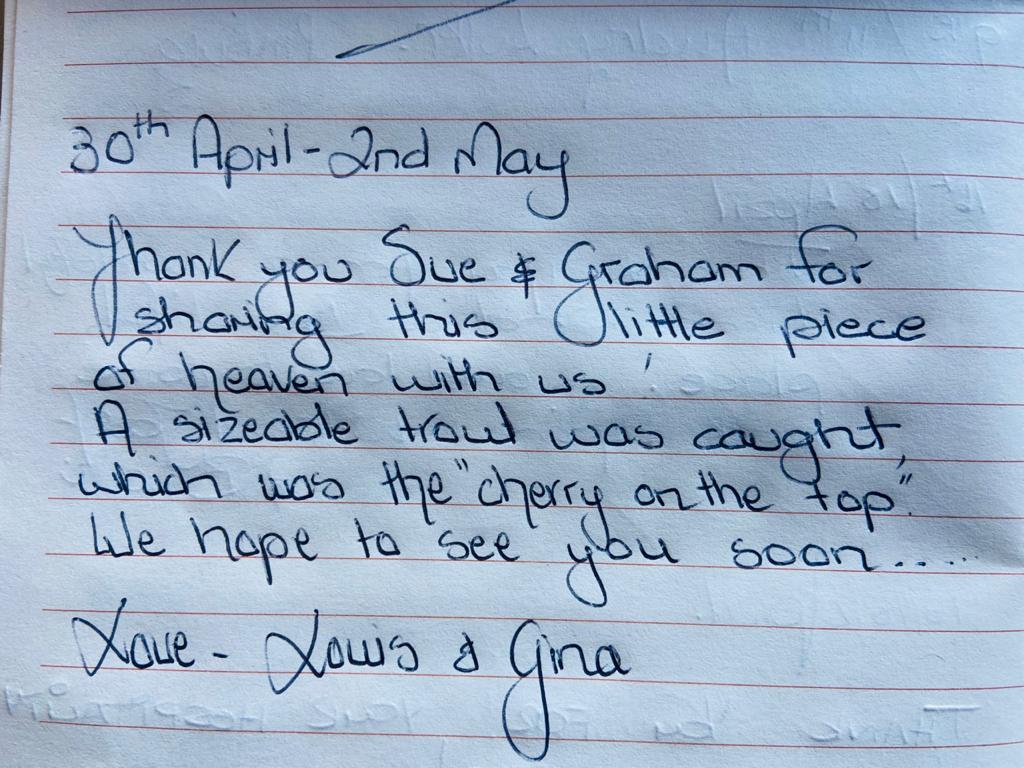 30th April - 2nd May
Thank you Sue & Graham for
sharing this little piece
of heaven with us!
A sizeable trout was caught,
which was the "cherry on the top".
We hope to see you soon.....
Love - Louis & Gina